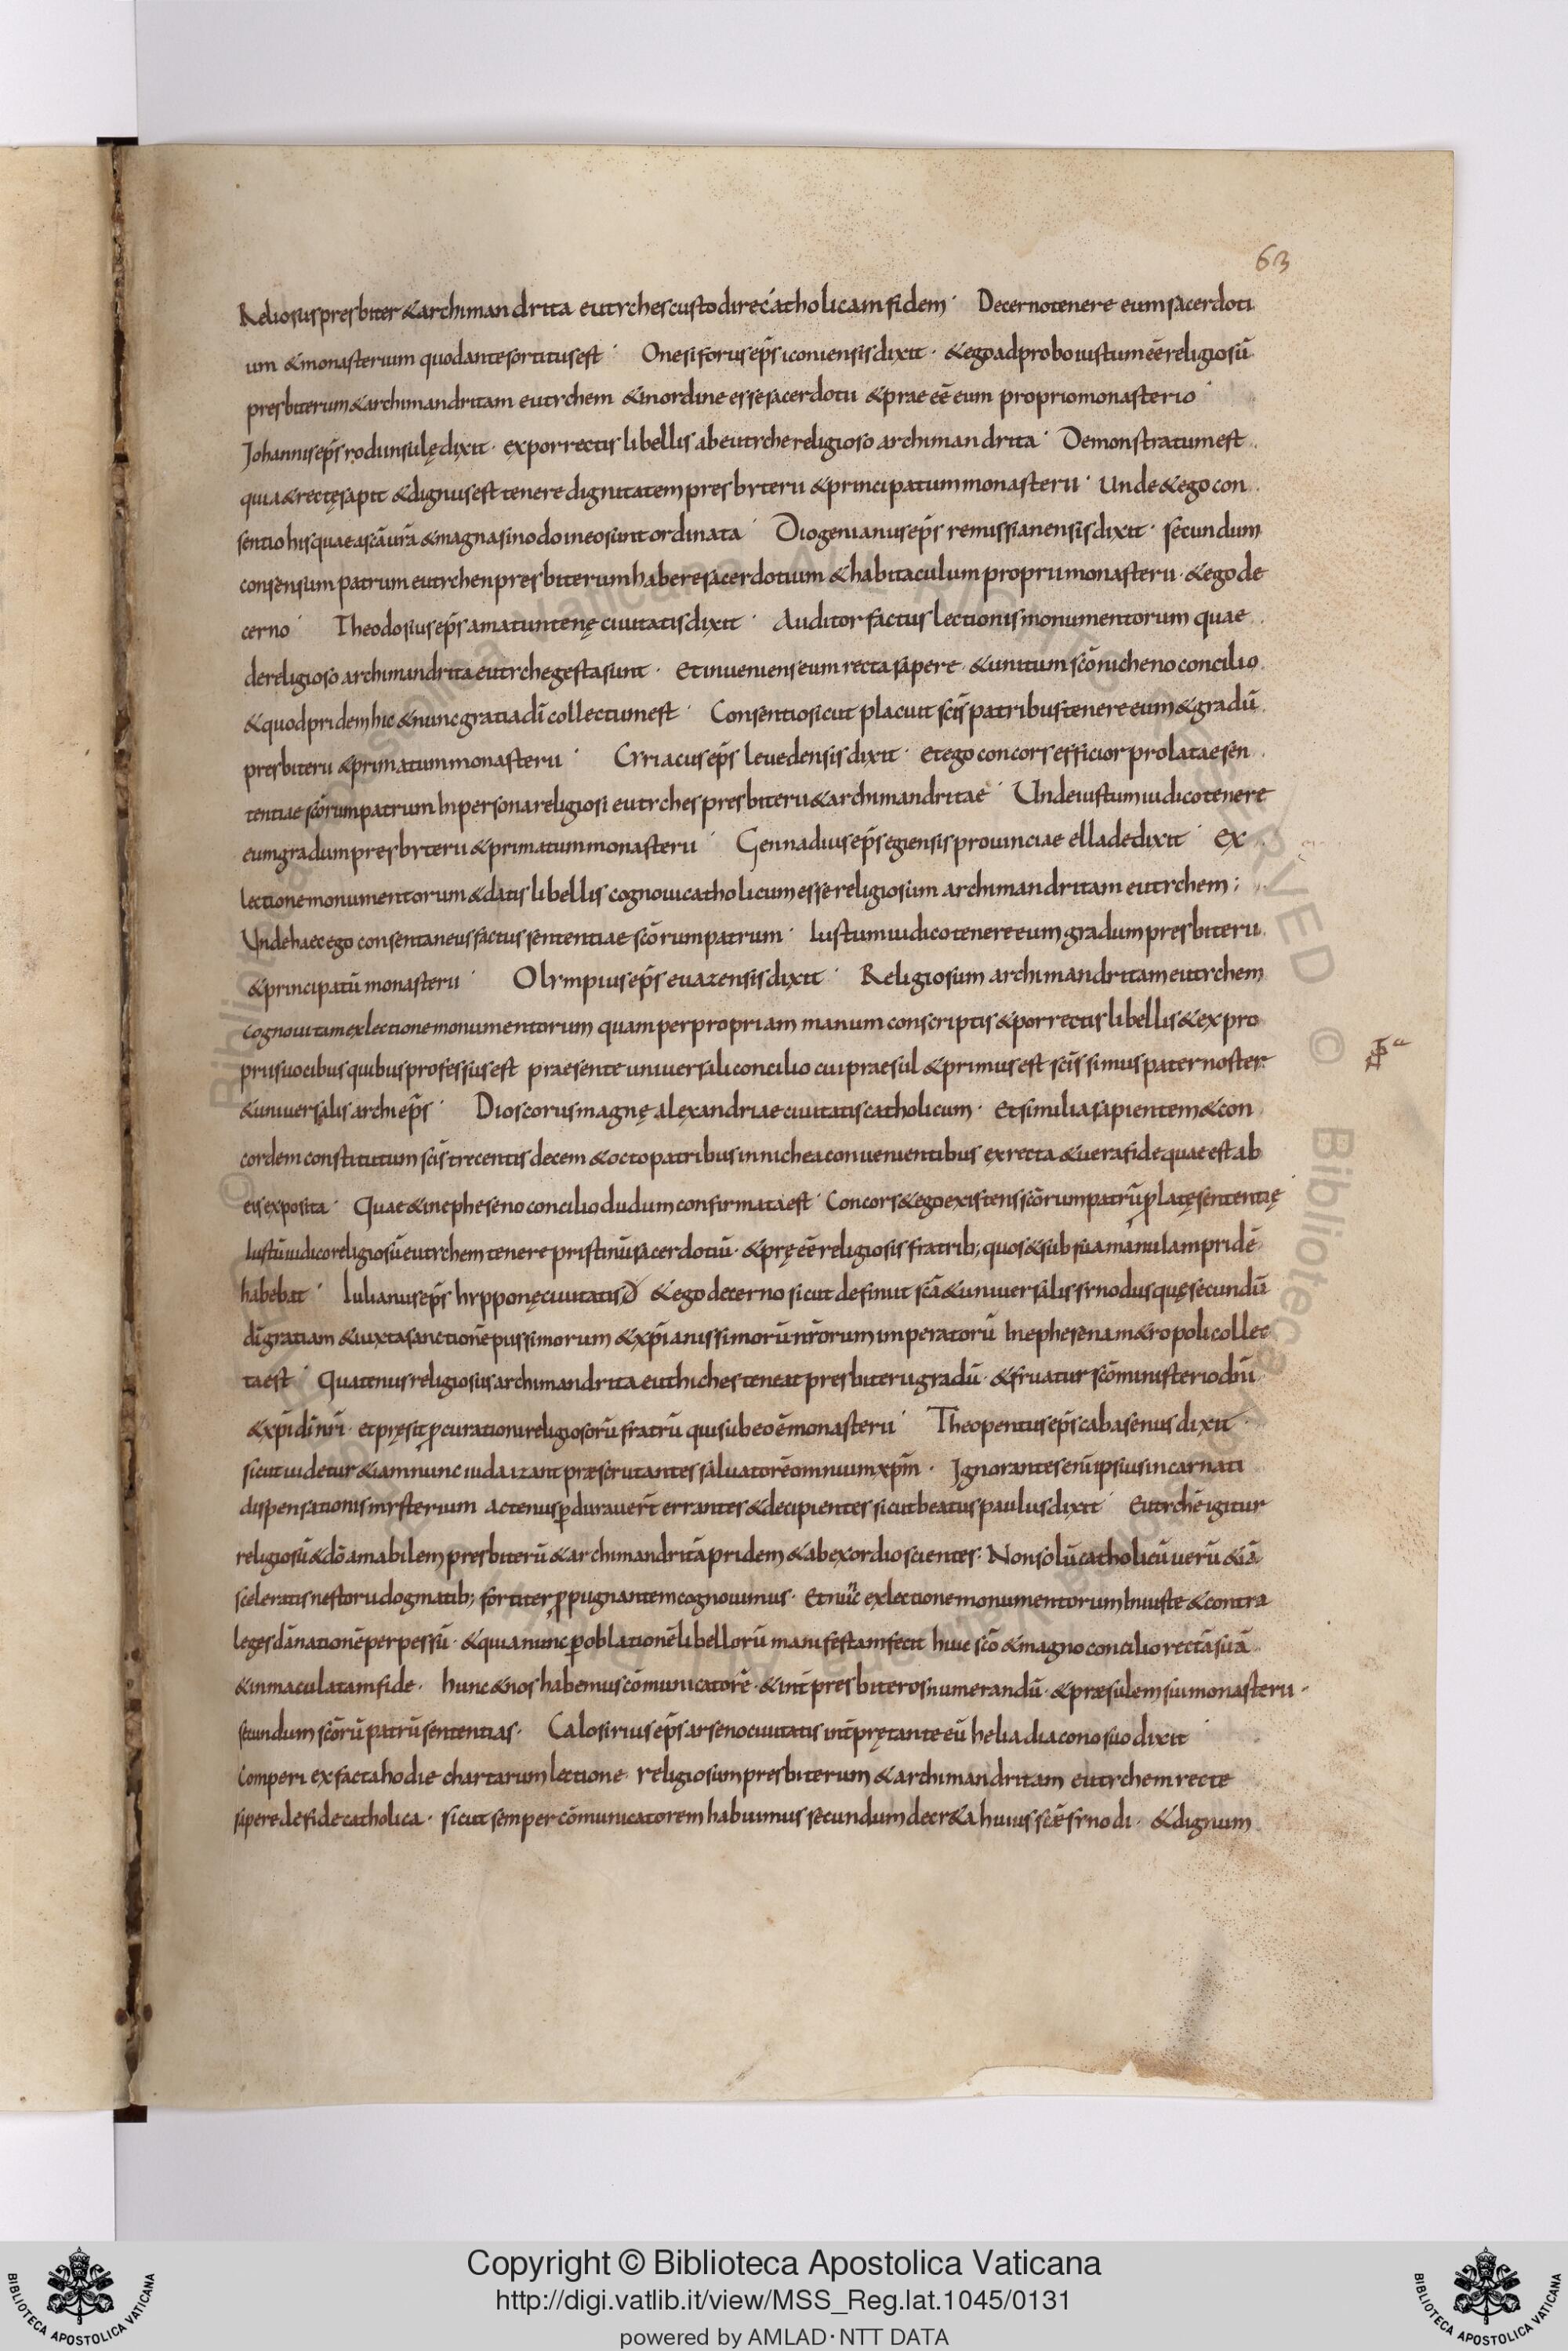 63
Reliosus presbiter & archimandrita eutyches custodire catholicam fidem · Decerno tenere eum sacerdoti
um & monasterium quod ante sortitus est · Onesiforus ep̄s iconiensis dixit · & ego adprobo iustum eē religiosū
presbiterum & archimandritam eutychem & in ordine esse sacerdotii & prae eē eum proprio monasterio ·
Johannis ep̄s rodunsulę dixit · ex porrectis libellis ab eutyche religioso archimandrita · Demonstratum est
quia & rectę sapit & dignus est tenere dignitatem presbyterii & principatum monasterii · unde & ego con
sentio his quae a sc̄a ur̄a & magna sinodo in eo sunt ordinata · Diogenianus ep̄s remissianensis dixit · secundum
consensum patrum eutychen presbiterum habere sacerdotium & habitaculum proprii monasterii · & ego de
cerno · Theodosius ep̄s amatuntenę ciuitatis dixit · Auditor factus lectionis monumentorum quae
de religioso archimandrita eutyche gesta sunt · Et inueniens eum recta sapere · & unitum sc̄o nicheno concilio
& quod pridem hic & nunc gratia dī collectum est · Consentio sicut placuit sc̄is patribus tenere eum & gradū
presbiterii & primatum monasterii · Cyriacus ep̄s leuedensis dixit · et ego concors efficior prolatae sen
tentiae sc̄orum patrum In persona religiosi eutyches presbiterii & archimandritae · Unde iustum iudico tenere
eum gradum presbyterii & primatum monasterii · Gennadius ep̄s egiensis prouinciae ellade dixit · ex
lectione monumentorum & datis libellis cognoui catholicum esse religiosum archimandritam eutychem ;
Unde haec ego consentaneus factus sententiae sc̄orum patrum · Iustum iudico tenere eum gradum presbiterii
& principatū monasterii · Olympius ep̄s euazensis dixit · Religiosum archimandritam eutychem
cognoui tam ex lectione monumentorum quam per propriam manum conscriptis & porrectis libellis & ex pro
priis uocibus quibus professus est praesente uniuersali concilio cui praesul & primus est sc̄issimus pater noster
& uniuersalis archiep̄s · Dioscorus magnę alexandriae ciuitatis catholicum · et similia sapientem & con
cordem constitutum sc̄is trecentis decem & octo patribus in nichea conuenientibus ex recta & uera fide quae est ab
eis exposita · Quae & in epheseno concilio dudum confirmata est · Concors & ego existens sc̄orum patrū ꝓlatę sententię
Iustū iudico religiosū eutychem tenere pristinū sacerdotiū · & pręeē religiosis fratrib; quos & sub sua manu Iam pridē
habebat · Iulianus ep̄s hypponę ciuitatis đ & ego decerno sicut definiit sc̄a & uniuersalis synodus quę secundū
dī gratiam & iuxta sanctionē piissimorum & xp̄ianissimorū nr̄orum imperatorū In ephesena m&ropoli collec
ta est · Quatenus religiosus archimandrita euthiches teneat presbiterii gradū · & fruatur sc̄o ministerio dn̄i
& xp̄i dī nr̄i · et pręsit ꝓcurationi religiosorū fratrū qui sub eo ē monasterii · Theopentus ep̄s cabasenus dixit ·
sicut uidetur & iam nunc iudaizant praescrutantes saluatorē omnium xp̄m · Ignorantes enī ipsius incarnati
dispensationis mysterium actenus ꝑdurauer̄t errantes & decipientes sicut beatus paulus dixit · Eutychē igitur
religiosū & dō amabilem presbiterū & archimandritā pridem & ab exordio scientes : Non solū catholicū uerū &iā
sceleratis nestorii dogmatib; fortiter ꝓpugnantem cognouimus · Et nūc ex lectione monumentorum Iniuste & contra
leges dānationē perpessū · & quia nunc ꝑ oblationē libellorū manifestam fecit huic sc̄o & magno concilio rectā suā
& inmaculatam fide · hunc & nos habemus cōmunicatorē · & int̄ presbiteros numerandū · & praesulem sui monasterii ·
secundum sc̄orū patrū sententias · Calosirius ep̄s arsenociuitatis int̄prętante eū helia diacono suo dixit ·
Comperi ex facta hodie chartarum lectione religiosum presbiterum & archimandritam eutychem recte
sapere de fide catholica · sicut semper cōmunicatorem habuimus secundum decr&a huius sc̄ae synodi · & dignum
Copyright © Biblioteca Apostolica Vaticana
http://digi.vatlib.it/view/MSS_Reg.lat.1045/0131
powered by AMLAD·NTT DATA
BIBLIOTECA APOSTOLICA VATICANA
BIBLIOTECA APOSTOLICA VATICANA